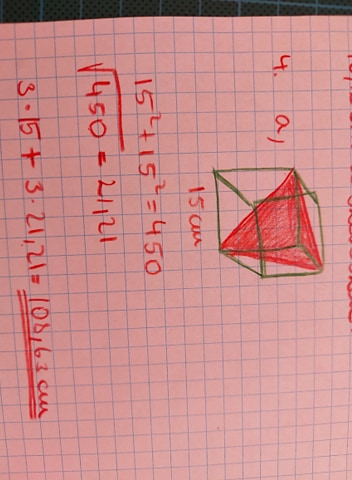 4. a,
15 cm
15² + 15² = 450
√450 = 21,21
3·15 + 3·21,21 = 108,63 cm